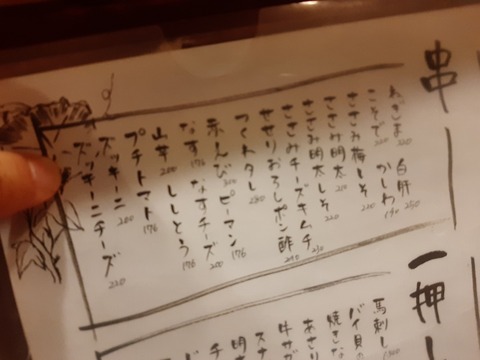 串
ねぎま 220 白肝 250
こそで 220 かしわ 190
ささみ梅しそ 220
ささみ明太 210
ささみ明太しそ 220
ささみチーズキムチ 250
せせりおろしポン酢
つくねタレ 280
赤えんび ピーマン 176
なす 176 なすチーズ 200
山芋 200 ししとう 176
プチトマト 176
ズッキーニ 200
ズッキーニチーズ 220
一押し
馬刺し
バイ貝
焼きな
あさり
牛サガ
スナ
明太
チ